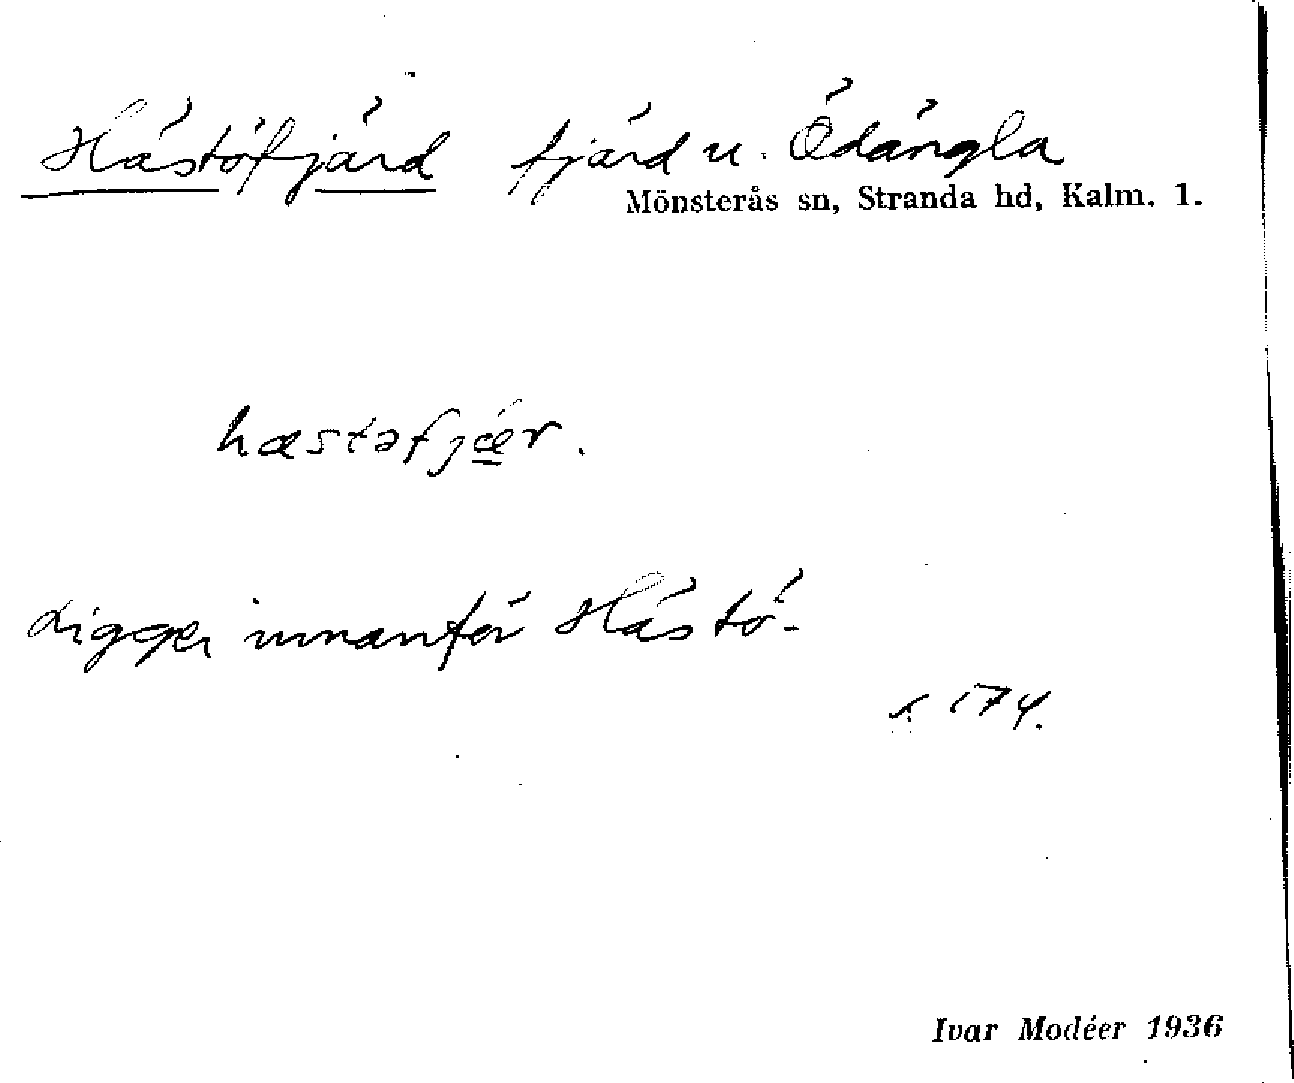 Hästöfjärd fjärd u. Ödängla
Mönsterås sn, Stranda hd, Kalm. l.
hæstəfjæ̲r.
Ligger innanför Hästö.
174.
Ivar Modéer 1936